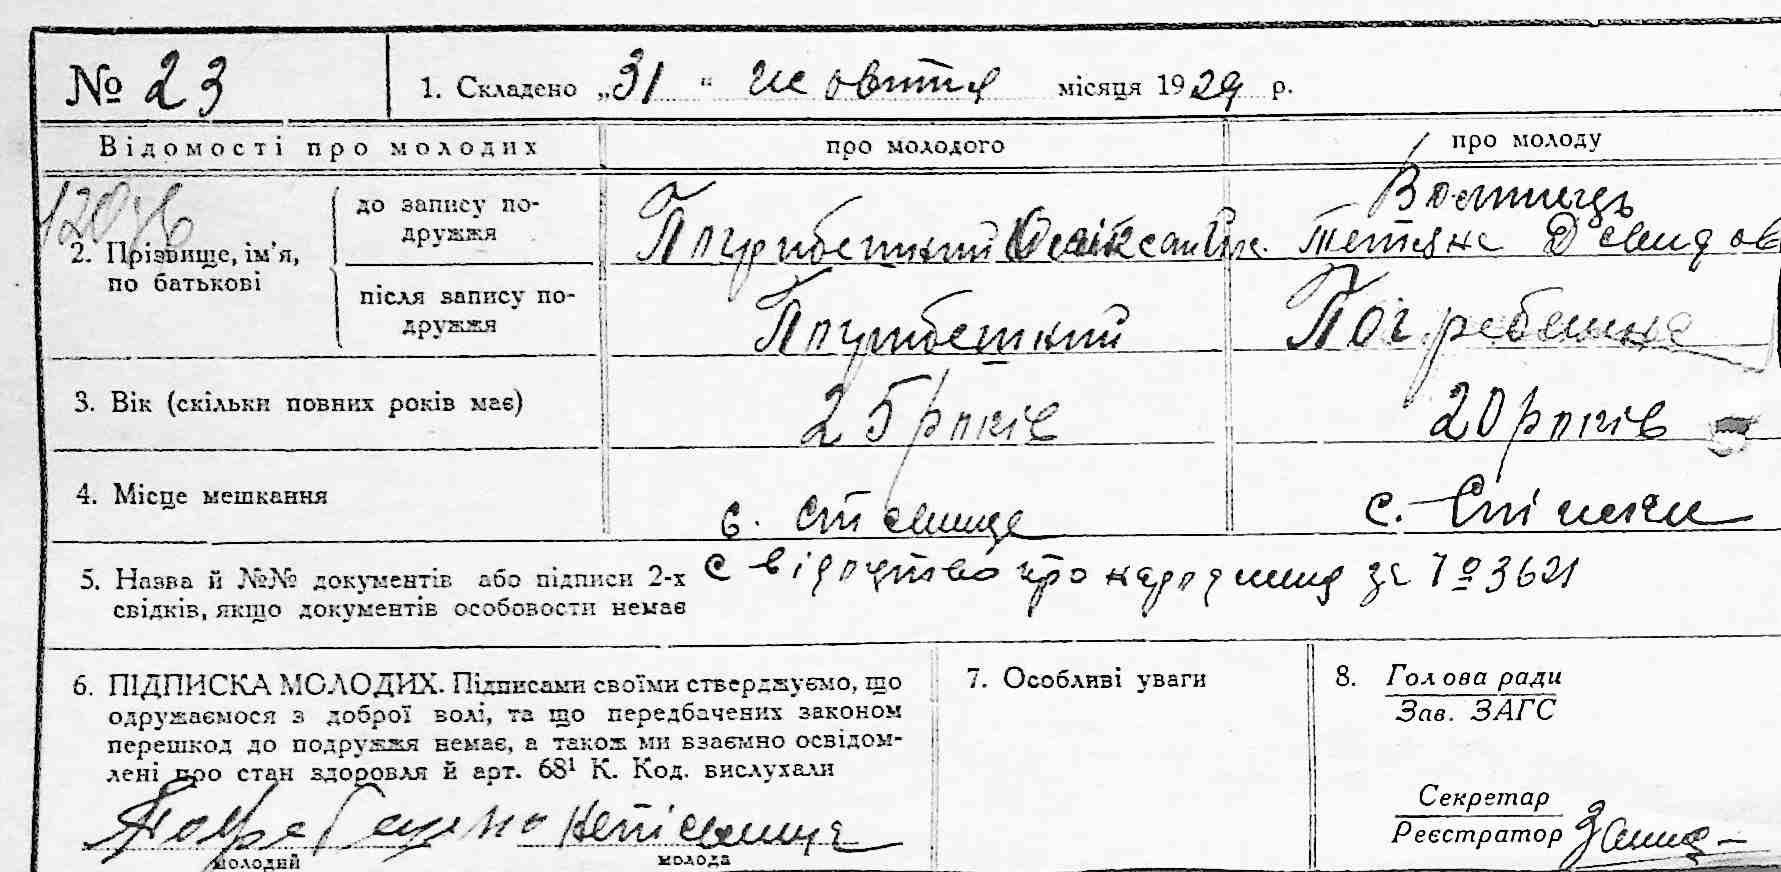 № 23
1. Складено „31" жовтня місяця 1929 р.
Відомості про молодих
про молодого
про молоду
2. Прізвище, ім'я, по батькові
до запису подружжя
Погрибецкий
Волинець
Тетяна Давидов
після запису подружжя
Погрибецкий
Погребецка
3. Вік (скільки повних років має)
25 років
20 років
4. Місце мешкання
с.
с.
5. Назва й №№ документів або підписи 2-х
свідків, якщо документів особовости немає
Свідоцтво про народження за № 3621
6. ПІДПИСКА МОЛОДИХ. Підписами своїми стверджуємо, що
одружаємося з доброї волі, та що передбачених законом
перешкод до подружжя немає, а також ми взаємно освідом-
лені про стан здоровля й арт. 68¹ К. Код. вислухали
молодий
молода
7. Особливі уваги
8. Голова ради
Зав. ЗАГС
Секретар
Реєстратор